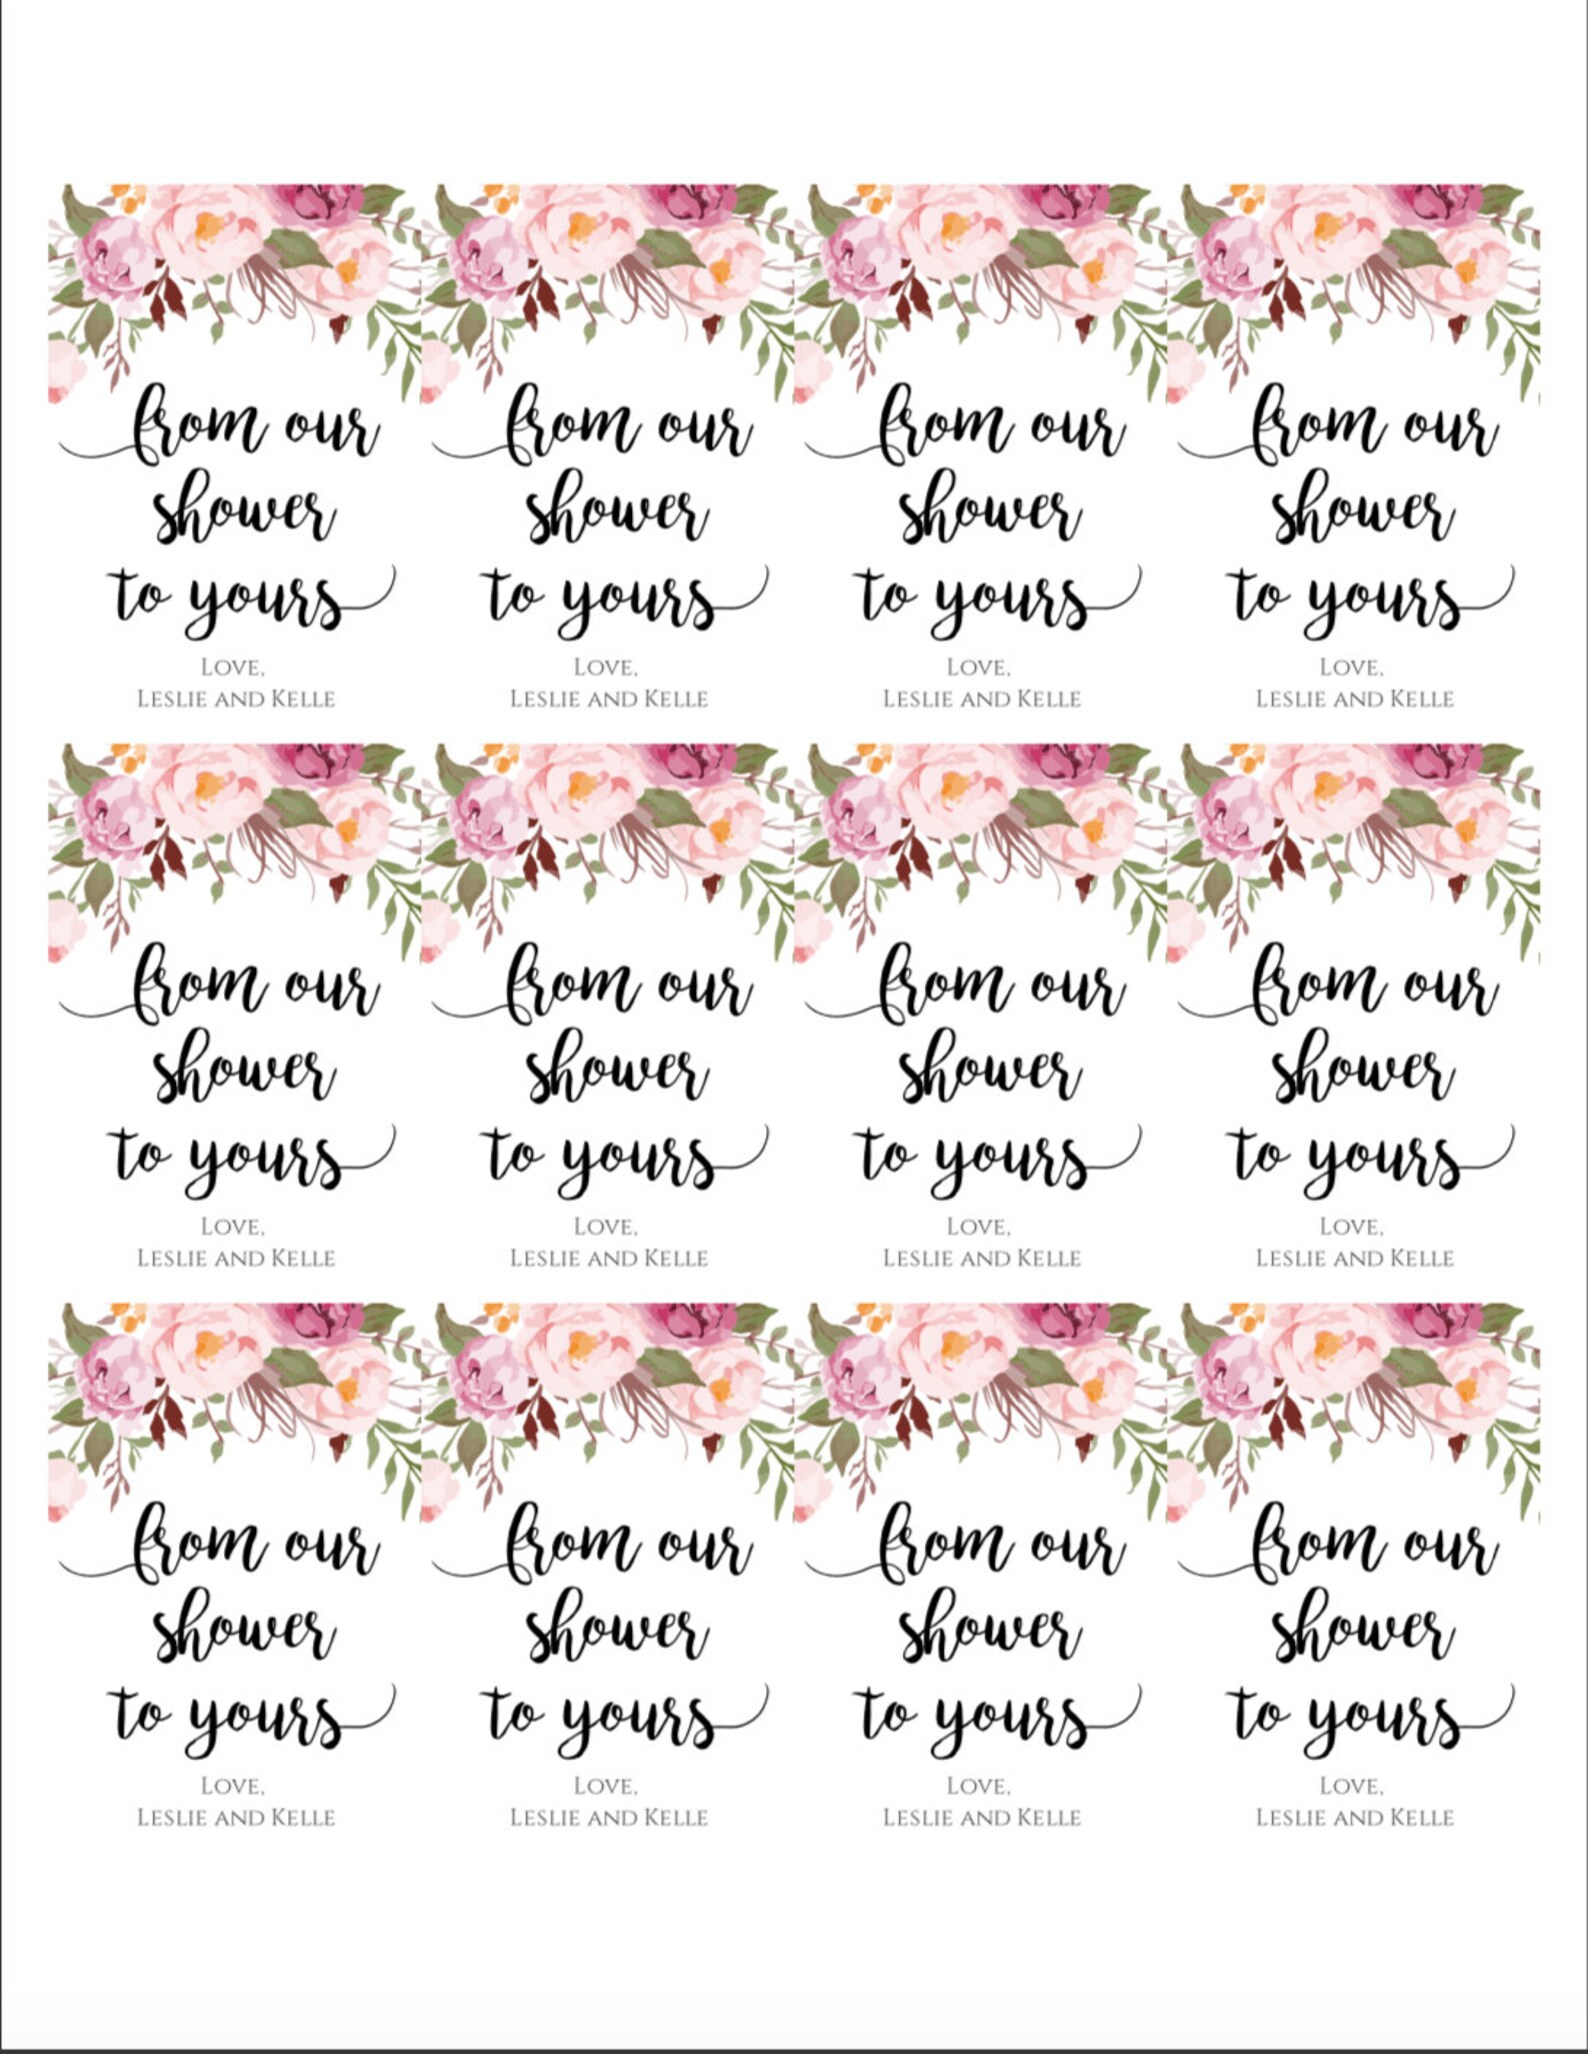 from our from our from our from our
shower shower shower shower
to yours to yours to yours to yours
LOVE, LOVE, LOVE, LOVE,
LESLIE AND KELLE LESLIE AND KELLE LESLIE AND KELLE LESLIE AND KELLE
from our from our from our from our
shower shower shower shower
to yours to yours to yours to yours
LOVE, LOVE, LOVE, LOVE,
LESLIE AND KELLE LESLIE AND KELLE LESLIE AND KELLE LESLIE AND KELLE
from our from our from our from our
shower shower shower shower
to yours to yours to yours to yours
LOVE, LOVE, LOVE, LOVE,
LESLIE AND KELLE LESLIE AND KELLE LESLIE AND KELLE LESLIE AND KELLE